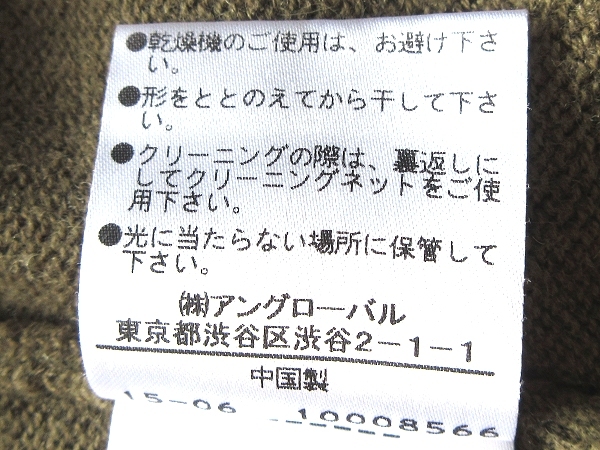 ●乾燥機のご使用は、お避け下さ
い。
●形をととのえてから干して下さ
い。
●クリーニングの際は、裏返しに
してクリーニングネットをご使
用下さい。
●光に当たらない場所に保管して
下さい。
㈱アングローバル
東京都渋谷区渋谷2-1-1
中国製
15-06 10008566